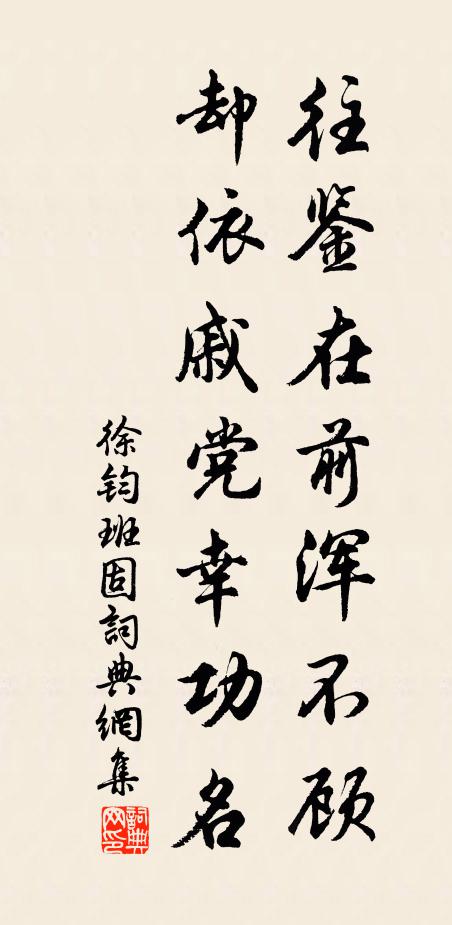 往鉴在前浑不顾
却依戚党幸功名
徐钧班固詞典網集
詞典网印